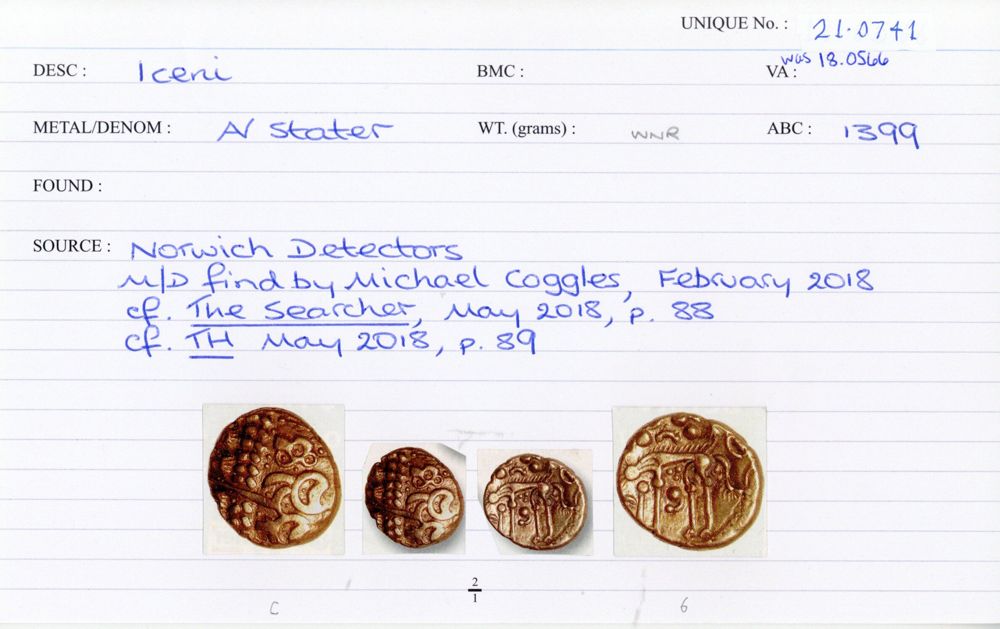 UNIQUE No. : 21.0741
DESC : Iceni BMC : VA : was 18.0566
METAL/DENOM : A/ Stater WT. (grams) : WNR ABC : 1399
FOUND :
SOURCE : Norwich Detectors
M/D find by Michael Coggles, February 2018
cf. The Searcher, May 2018, p. 88
cf. TH May 2018, p. 89
2
1
C 6